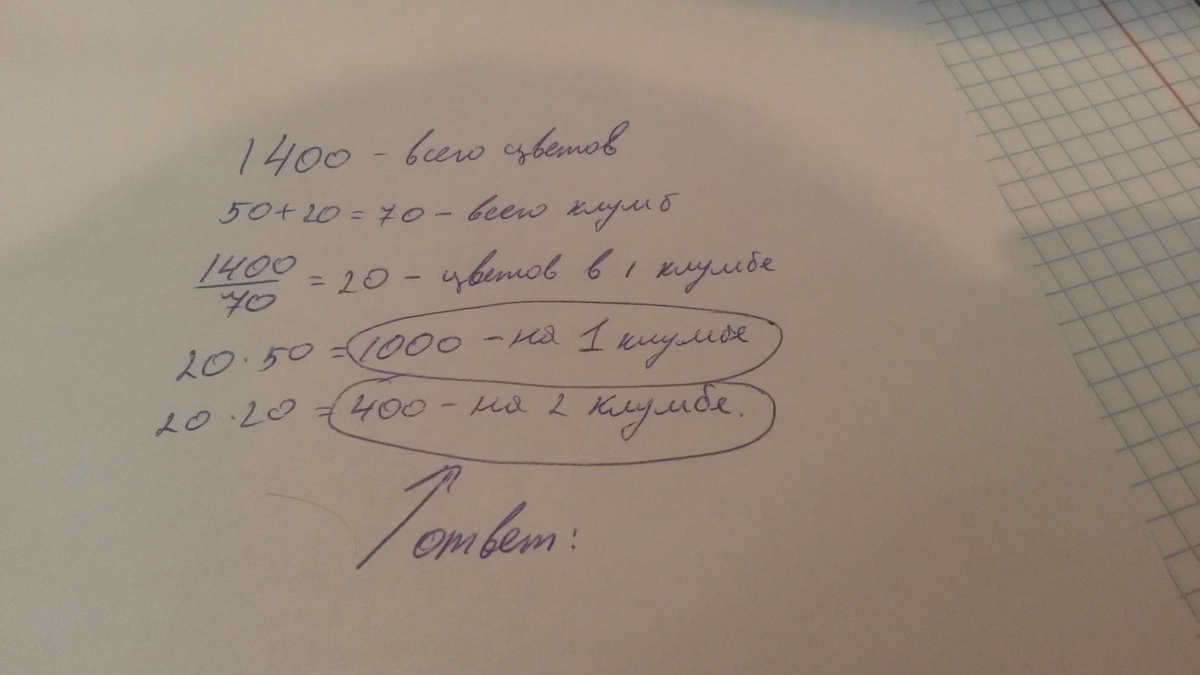 1400 - всего цветов
50+20=70 - всего клумб
1400/70 = 20 - цветов в 1 клумбе
20·50 = 1000 - на 1 клумбе
20·20 = 400 - на 2 клумбе.
ответ: